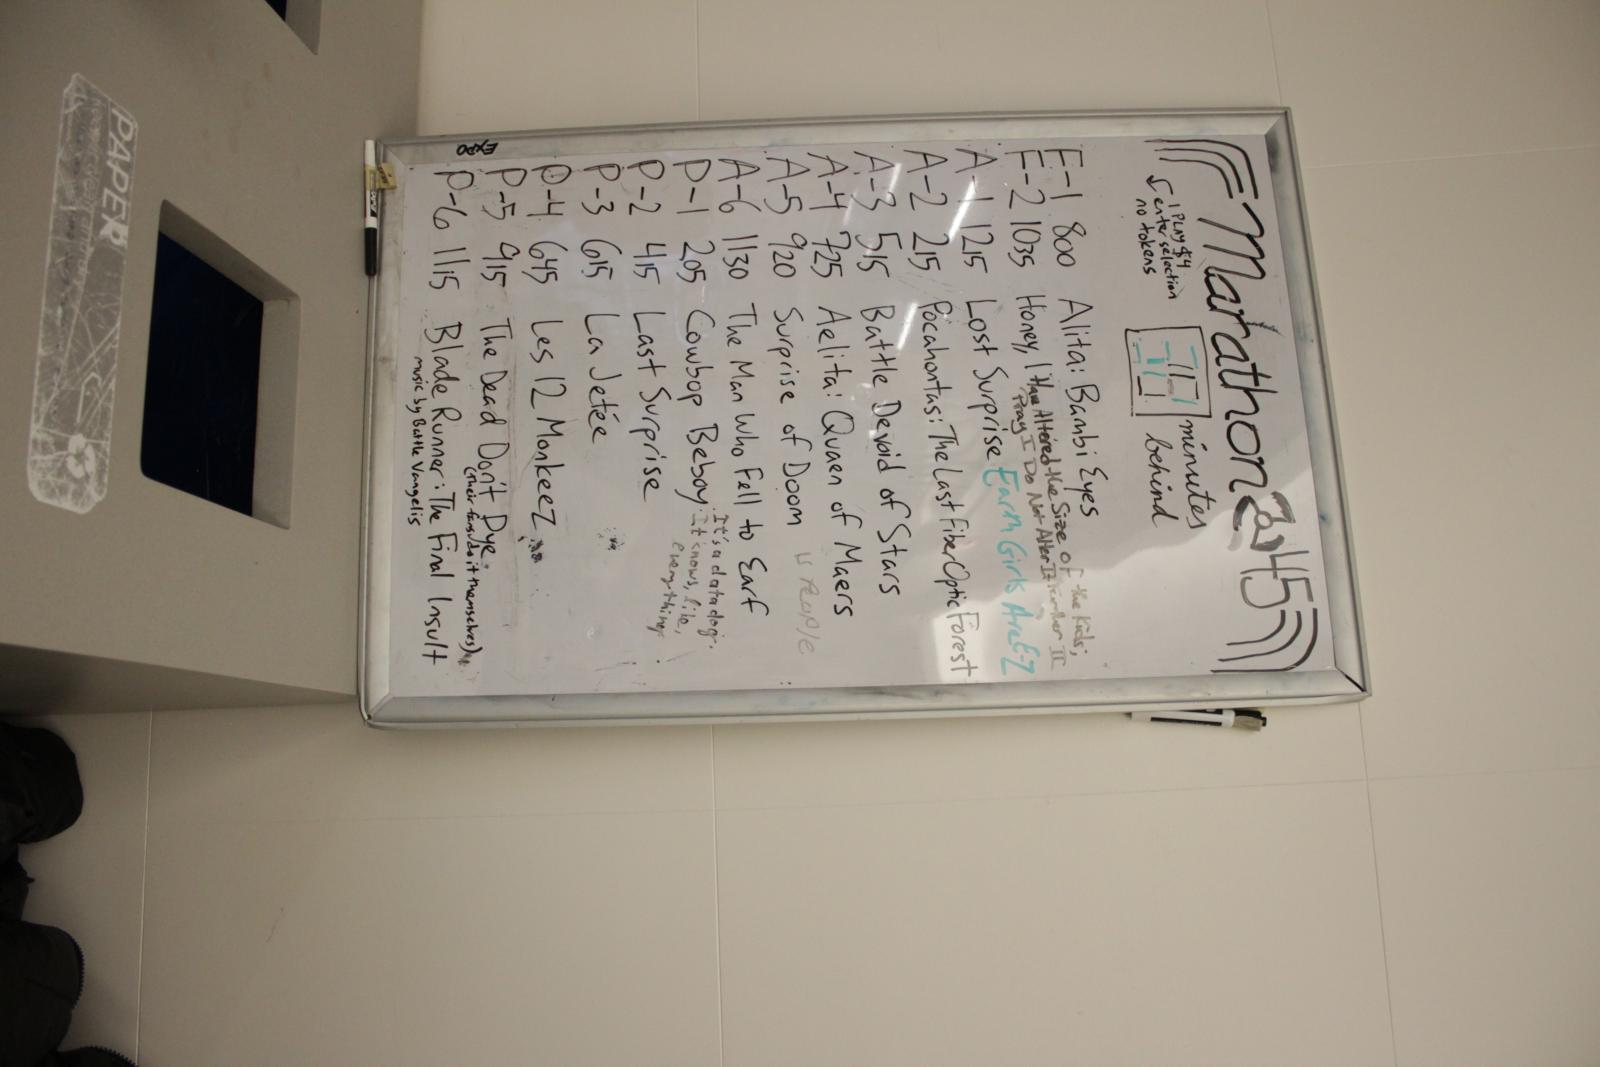 Marathon 45
1 PLAY $4
5 enter selection
no tokens
minutes
behind
E-1 800 Alita: Bambi Eyes
E-2 1035 Honey, I Have Altered the Size of the Kids;
Pray I Do Not Alter It Further II
A-1 1215 Lost Surprise Earth Girls Are E-Z
A-2 215 Pocahontas: The Last Fiber Optic Forest
A-3 515 Battle Devoid of Stars
A-4 725 Aelita: Quaen of Maers
A-5 920 Surprise of Doom is people
A-6 1130 The Man Who Fell to Earf
P-1 205 Cowbop Beboy: It's a data dog.
It knows, like,
everything.
P-2 415 Last Surprise
P-3 615 La Jetée
P-4 645 Les 12 MonkeeZ
P-5 915 The Dead Don't Dye
(their fans do it themselves)
P-6 1115 Blade Runner: The Final Insult
music by Battle Vangelis
EXPO
PAPER